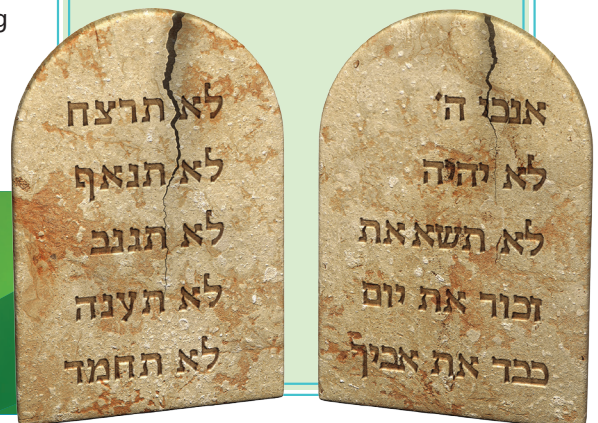 g
אנכי ה'
לא יהיה
לא תשא את
זכור את יום
כבד את אביך
לא תרצח
לא תנאף
לא תגנב
לא תענה
לא תחמד